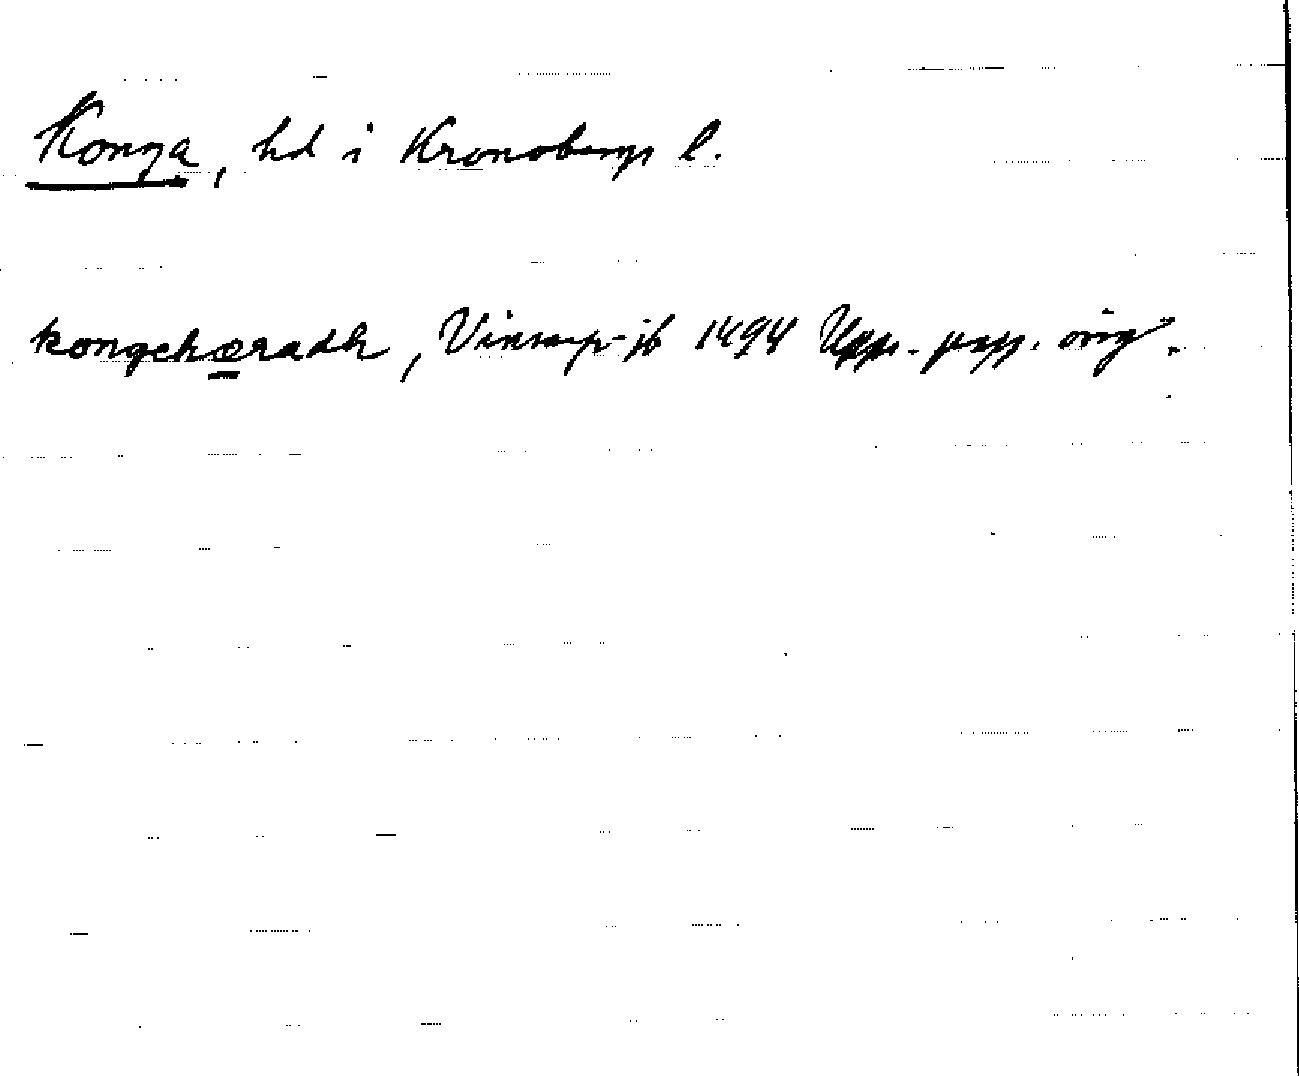 Konga, hd i Kronobergs l.
kongehæradh, Vinstorp-jb 1494 Upps. papp. orig.